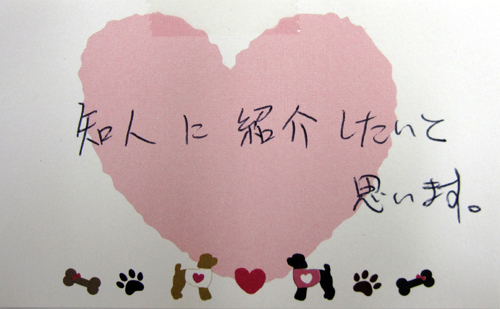 知人に紹介したいと
思います。